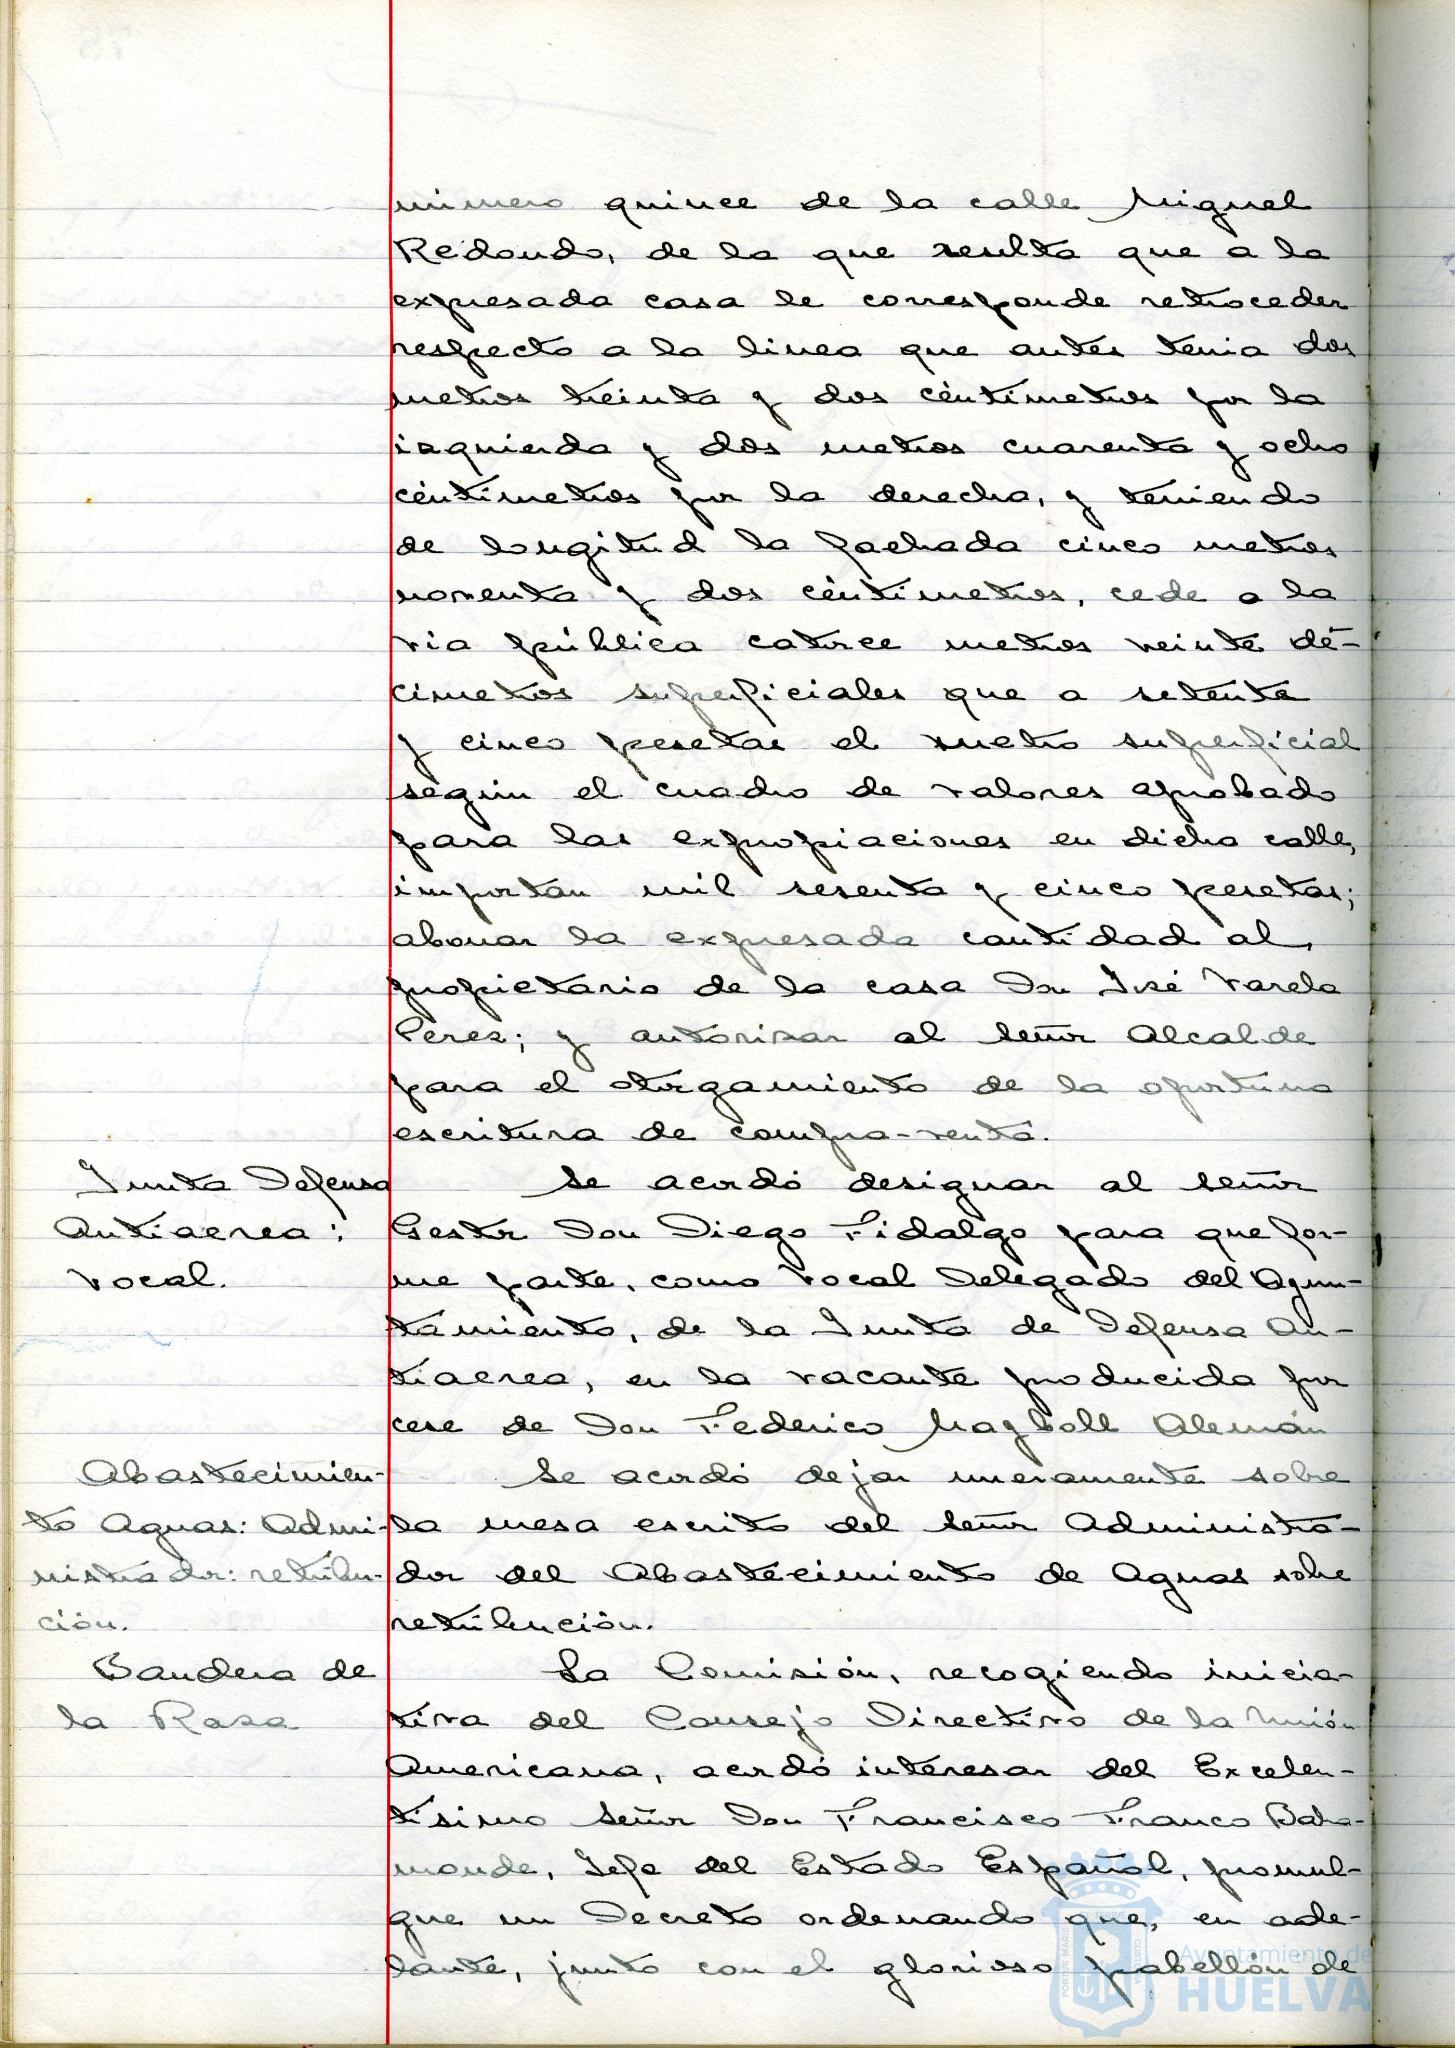 número quince de la calle Miguel
Redondo, de la que resulta que a la
expresada casa le corresponde retroceder
respecto a la linea que antes tenia dos
metros treinta y dos céntimetros por la
izquierda y dos metros cuarenta y ocho
céntimetros por la derecha, y teniendo
de longitud la fachada cinco metros
noventa y dos céntimetros, cede a la
via pública catorce metros veinte dé-
cimetros superficiales que a setenta
y cinco pesetas el metro superficial
según el cuadro de valores aprobado
para las expropiaciones en dicha calle,
importan mil sesenta y cinco pesetas;
abonar la expresada cantidad al
propietario de la casa Don José Varela
Perez; y autorizar al Señor Alcalde
para el otorgamiento de la oportuna
escritura de compra-venta.
Junta Defensa
Antiaerea:
Vocal.
Se acordó designar al Señor
Gestor Don Diego Fidalgo para que for-
me parte, como Vocal Delegado del Ayun-
tamiento, de la Junta de Defensa An-
tiaerea, en la vacante producida por
cese de Don Federico Alemán
Abastecimien-
to Aguas: Admi-
nistrador: retribu-
ción.
Se acordó dejar nueramente sobre
la mesa escrito del Señor Administra-
dor del Abastecimiento de Aguas sobre
retribución.
Bandera de
la Raza
La Comisión, recogiendo inicia-
tiva del Consejo Directivo de la Unión
Americana, acordó interesar del Excelen-
tisimo Señor Don Francisco Franco Baha-
monde, Jefe del Estado Español, promul-
gue un Decreto ordenando que, en ade-
lante, junto con el glorioso pabellón de
Ayuntamiento de
HUELVA